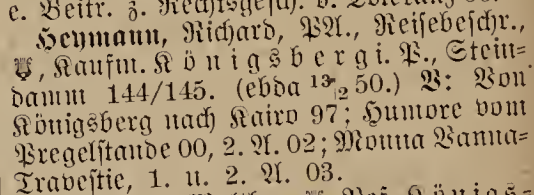 c. Beitr. z. Rechtsgesch. d.
Heymann, Richard, PA., Reisebeschr.,
Kaufm. Königsberg i. P., Stein-
damm 144/145. (ebda 13/12 50.) V: Von
Königsberg nach Kairo 97; Humore vom
Pregelstande 00, 2. A. 02; Monna Vanna-
Travestie, 1. u. 2. A. 03.